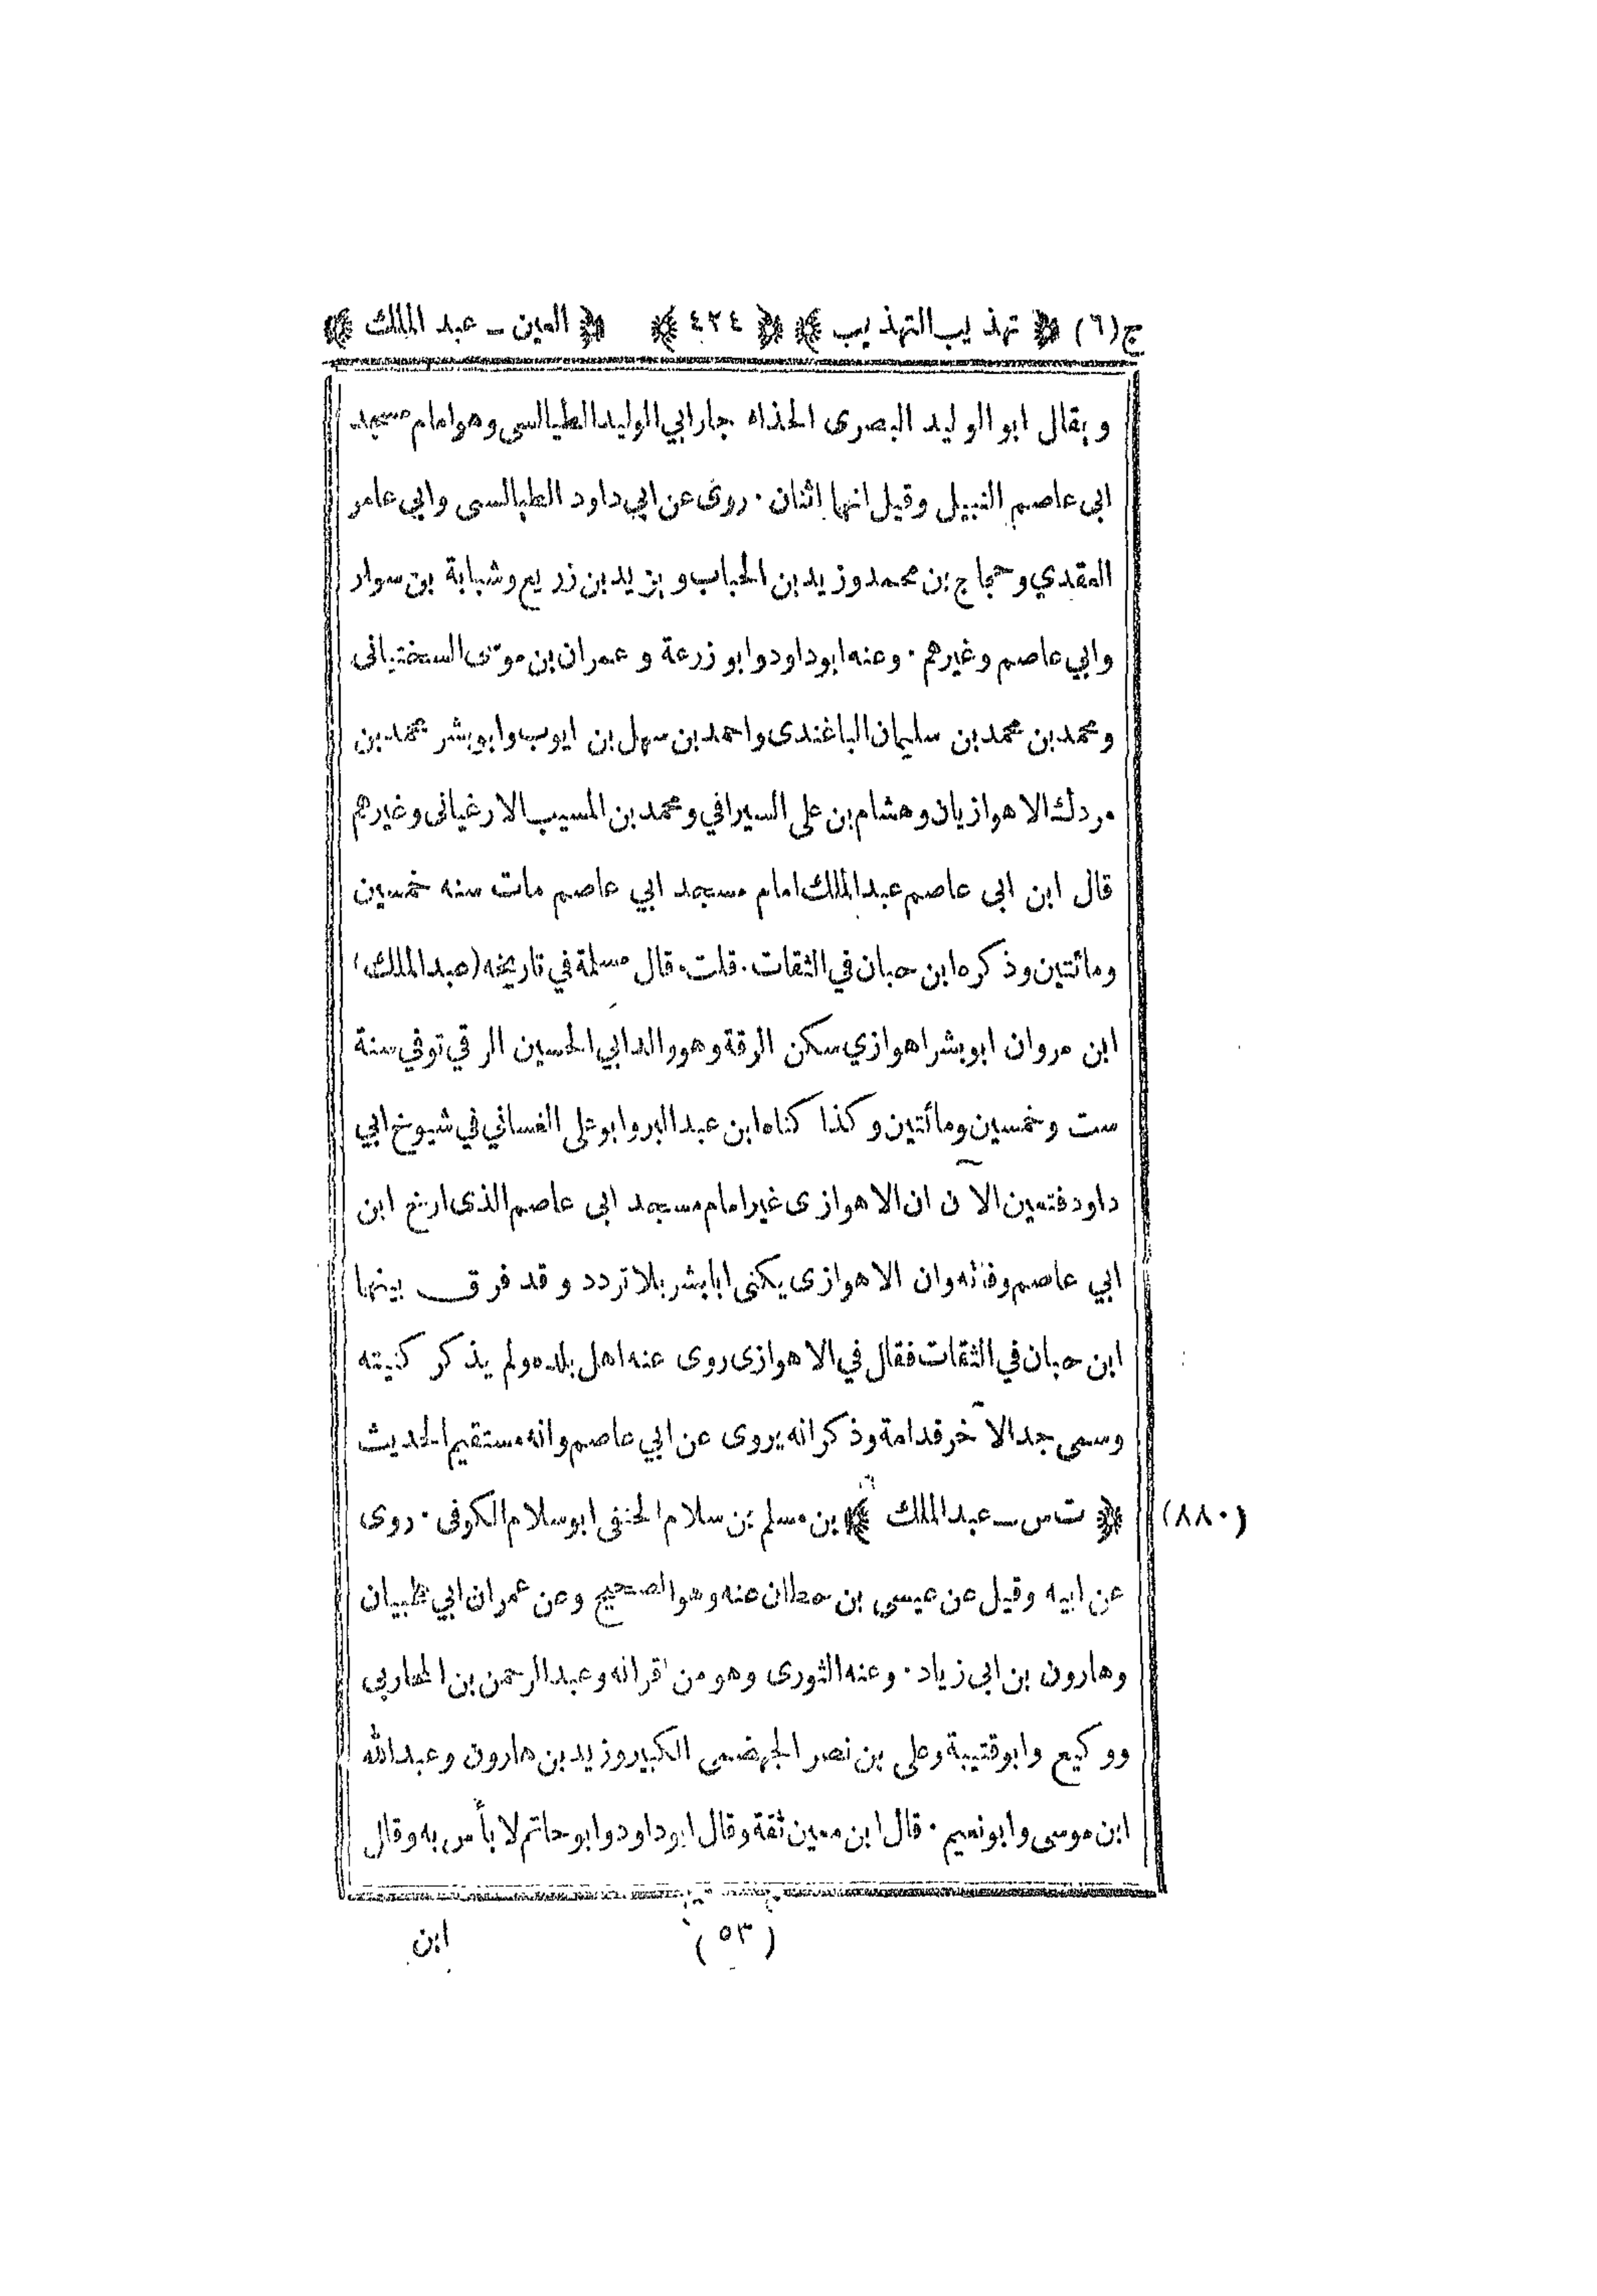 ج(٦) ﴿ تهذيب التهذيب ﴾ ﴿ ٤٢٤ ﴾ ﴿ العين ــ عبد الملك ﴾
ويقال ابو الوليد البصرى الحذاء جار ابي الوليد الطيالسى وهو امام مسجد
ابى عاصم النبيل وقيل انهما اثنان ٠ روى عن ابي داود الطيالسى وابي عامر
العقدي وحجاج بن محمد وزيد بن الحباب ويزيد بن زريع وشبابة بن سوار
وابي عاصم وغيرهم ٠ وعنه ابو داود وابو زرعة وعمران بن موسى السختيانى
ومحمد بن محمد بن سليمان الباغندى واحمد بن سهل بن ايوب وابو بشر محمد بن
مردك الاهوازيان وهشام بن على السيرافي ومحمد بن المسيب الارغيانى وغيرهم
قال ابن ابى عاصم عبد الملك امام مسجد ابي عاصم مات سنه خمسين
ومائتين وذكره ابن حبان في الثقات ٠ قلت ٠ قال مسلمة في تاريخه (عبد الملك)
ابن مروان ابو بشر اهوازي سكن الرقة وهو والد ابي الحسين الرقي توفي سنة
ست وخمسين ومائتين وكذا كناه ابن عبد البر وابو على الغساني في شيوخ ابي
داود فتعين الآن ان الاهوازى غير امام مسجد ابى عاصم الذى ارخ ابن
ابي عاصم وفاته وان الاهوازى يكنى ابا بشر بلا تردد وقد فرق بينهما
ابن حبان في الثقات فقال في الاهوازى روى عنه اهل بلده ولم يذكر كنيته
وسمى جد الآخر قدامة وذكر انه يروى عن ابي عاصم وانه مستقيم الحديث
(٨٨٠) ﴿ ت س ــ عبد الملك ﴾ بن مسلم بن سلام الحنفى ابو سلام الكوفى ٠ روى
عن ابيه وقيل عن عيسى بن حطان عنه وهو الصحيح وعن عمران ابي ظبيان
وهارون بن ابى زياد ٠ وعنه الثورى وهو من اقرانه وعبد الرحمن بن المحاربي
ووكيع وابو قتيبة وعلى بن نصر الجهضمى الكبير وزيد بن هارون وعبد الله
ابن موسى وابو نعيم ٠ قال ابن معين ثقة وقال ابو داود وابو حاتم لا بأس به وقال
(٥٣) ابن